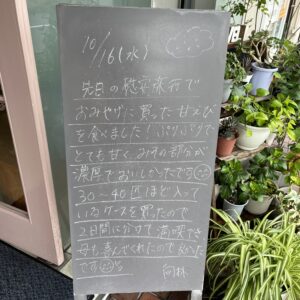 10/16(水)
先日の慰安旅行で
おみやげに買った甘えび
を食べました！ぷりぷりで
とても甘くみその部分が
濃厚でおいしかったです
30〜40匹ほど入って
いるケースを買ったので
2日間に分けて満喫でき
母も喜んでくれたので良かった
です